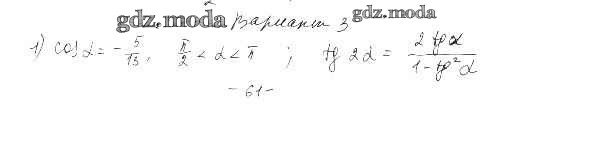 gdz.moda Вариант 3 gdz.moda
1) cos α = - 5/13, π/2 < α < π ; tg 2α = 2 tg α / 1 - tg² α
- 61 -